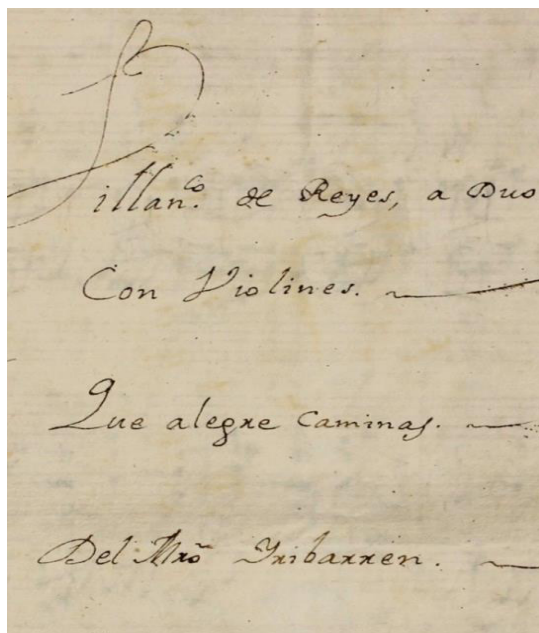 Villan.co de Reyes, a Duo
Con Violines.
Que alegre Caminas.
Del Mrõ Yribarren.